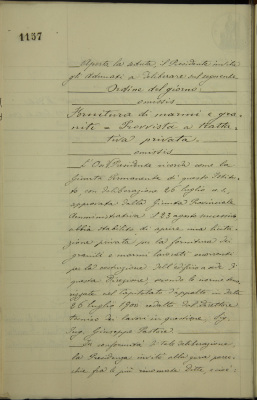 1137
Aperta la seduta, il Presidente invita
gli adunati a deliberare sul seguente
Ordine del giorno
omissis
Fornitura di marmi e gra-
niti = Provvista a tratta-
tiva privata
omissis
L'On. Presidente ricorda come la
Giunta Permanente di questo Istitu-
to con deliberazione 26 luglio
approvata dalla Giunta Provinciale
Amministrativa il 23 agosto successivo
abbia stabilito di aprire una licita-
zione privata per la fornitura dei
graniti e marmi lavorati occorrenti
per la costruzione dell'edificio sede di
questa Direzione, secondo le norme
nel Capitolato d'appalto in data
26 luglio 1900 redatto dal Direttore
tecnico dei lavori in questione, Sig.
Ing. Giuseppe
In conformità di tale deliberazione
la Presidenza invitò alla gara
fra le più rinomate Ditte